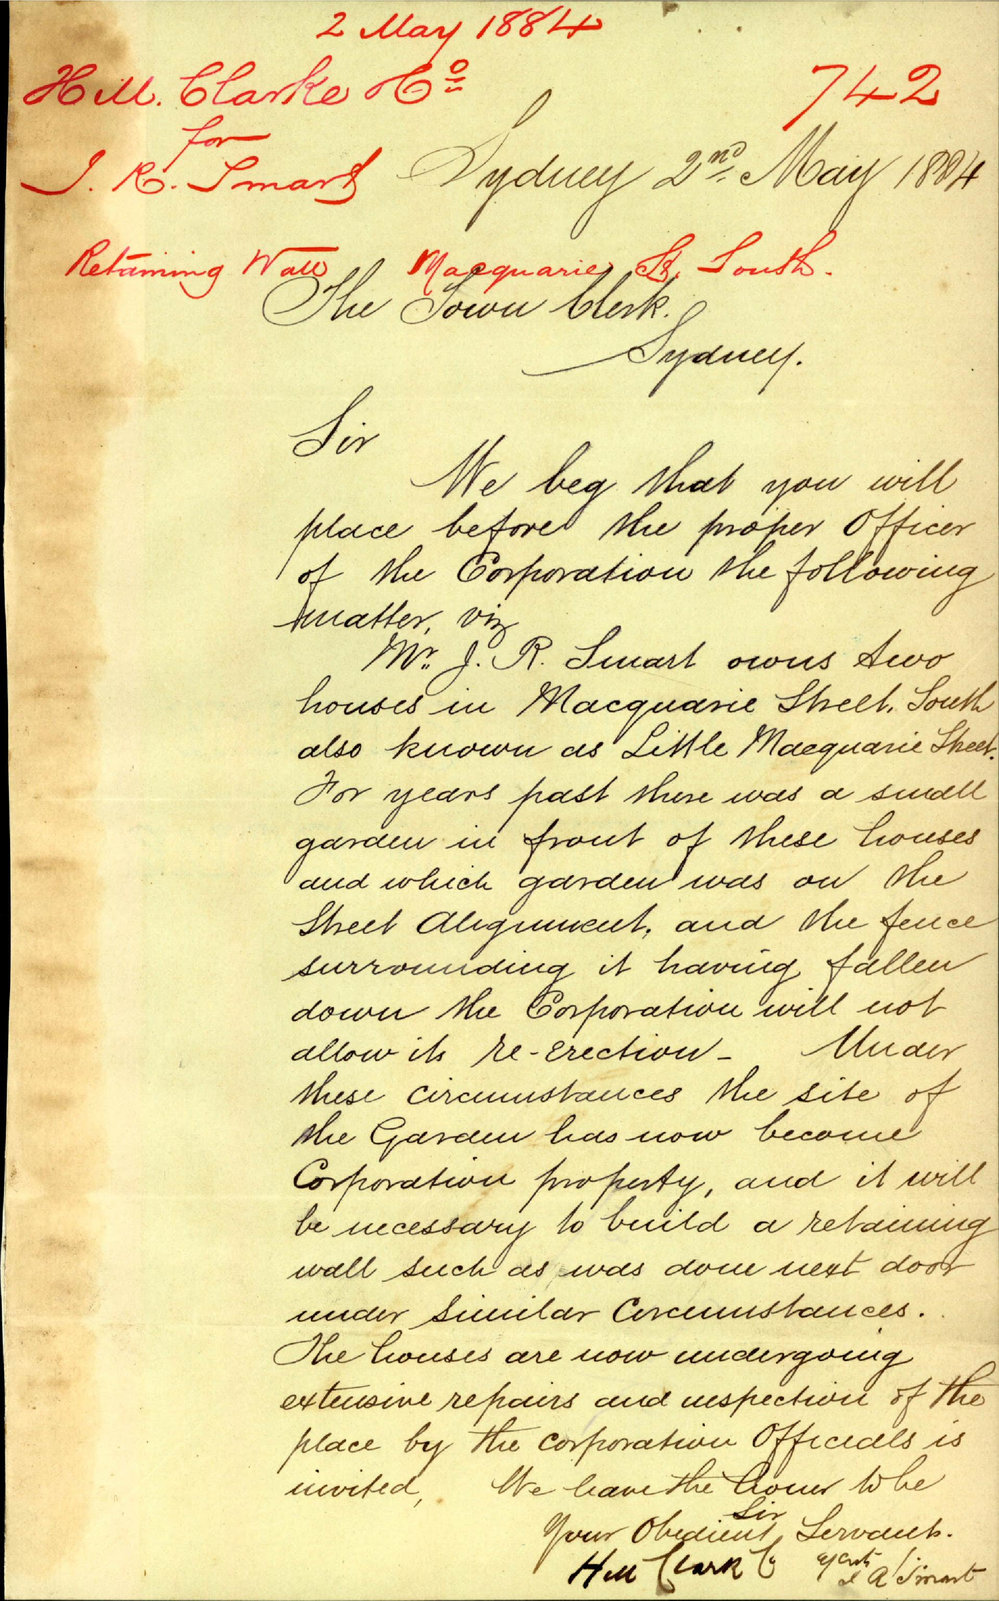 2 May 1884
Hill. Clarke & Co
742
for
J. R. Smart
Sydney 2nd May 1884
Retaining Wall Macquarie St. South.
The Town Clerk.
Sydney.
Sir
We beg that you will
place before the proper Officer
of the Corporation the following
matter, viz
Mr. J. R. Smart owns two
houses in Macquarie Street. South
also known as Little Macquarie Street.
For years past there was a small
garden in front of these houses
and which garden was on the
Street Alignment, and the fence
surrounding it having fallen
down the Corporation will not
allow its re-erection - Under
these circumstances the site of
the Garden has now become
Corporation property, and it will
be necessary to build a retaining
wall such as was done next door
under similar Circumstances.
The houses are now undergoing
extensive repairs and inspection of the
place by the corporation Officials is
invited, We have the honor to be
Sir
Your Obedient Servants.
Hill Clark Co
Smart